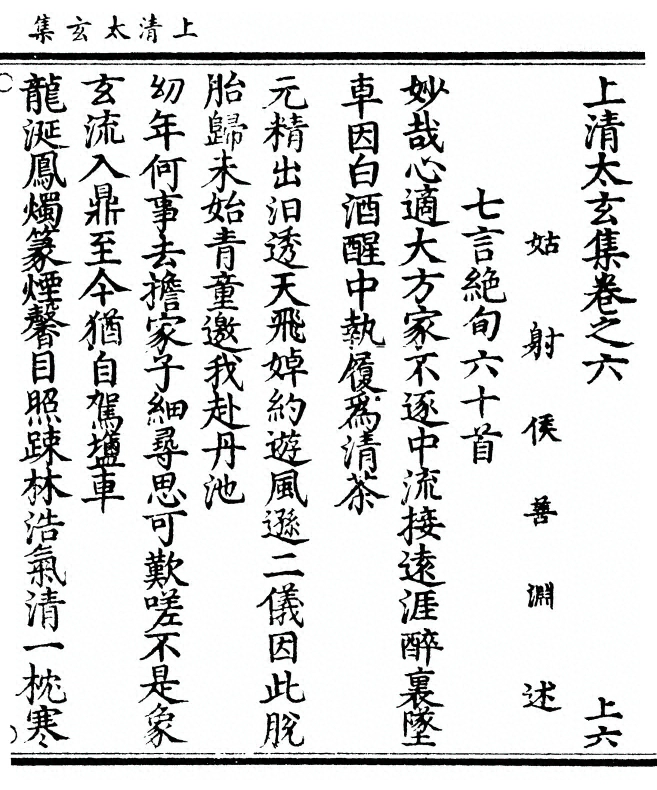 上清太玄集
上清太玄集卷之六 上六
姑射侯善淵述
七言絶句六十首
妙哉心適大方家不逐中流接遠涯醉裏墜
車因白酒醒中執履爲清茶
元精出汨透天飛婥約遊風遜二儀因此脫
胎歸未始青童邀我赴丹池
幼年何事去擔家子細尋思可歎嗟不是象
玄流入鼎至今猶自駕鹽車
龍涎鳳燭篆煙馨目照踈林浩氣清一枕寒